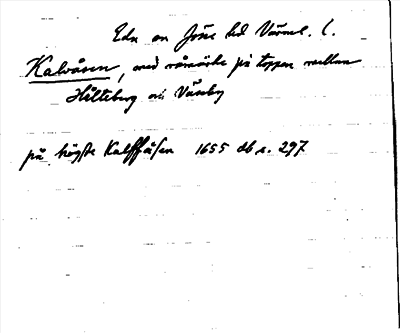 Eda sn Jösse hd Värml. l.
Kalvåsen, med råmärke på toppen mellan
Hälteberg och Vänby
på högste Kalffåsen 1655 db s. 297